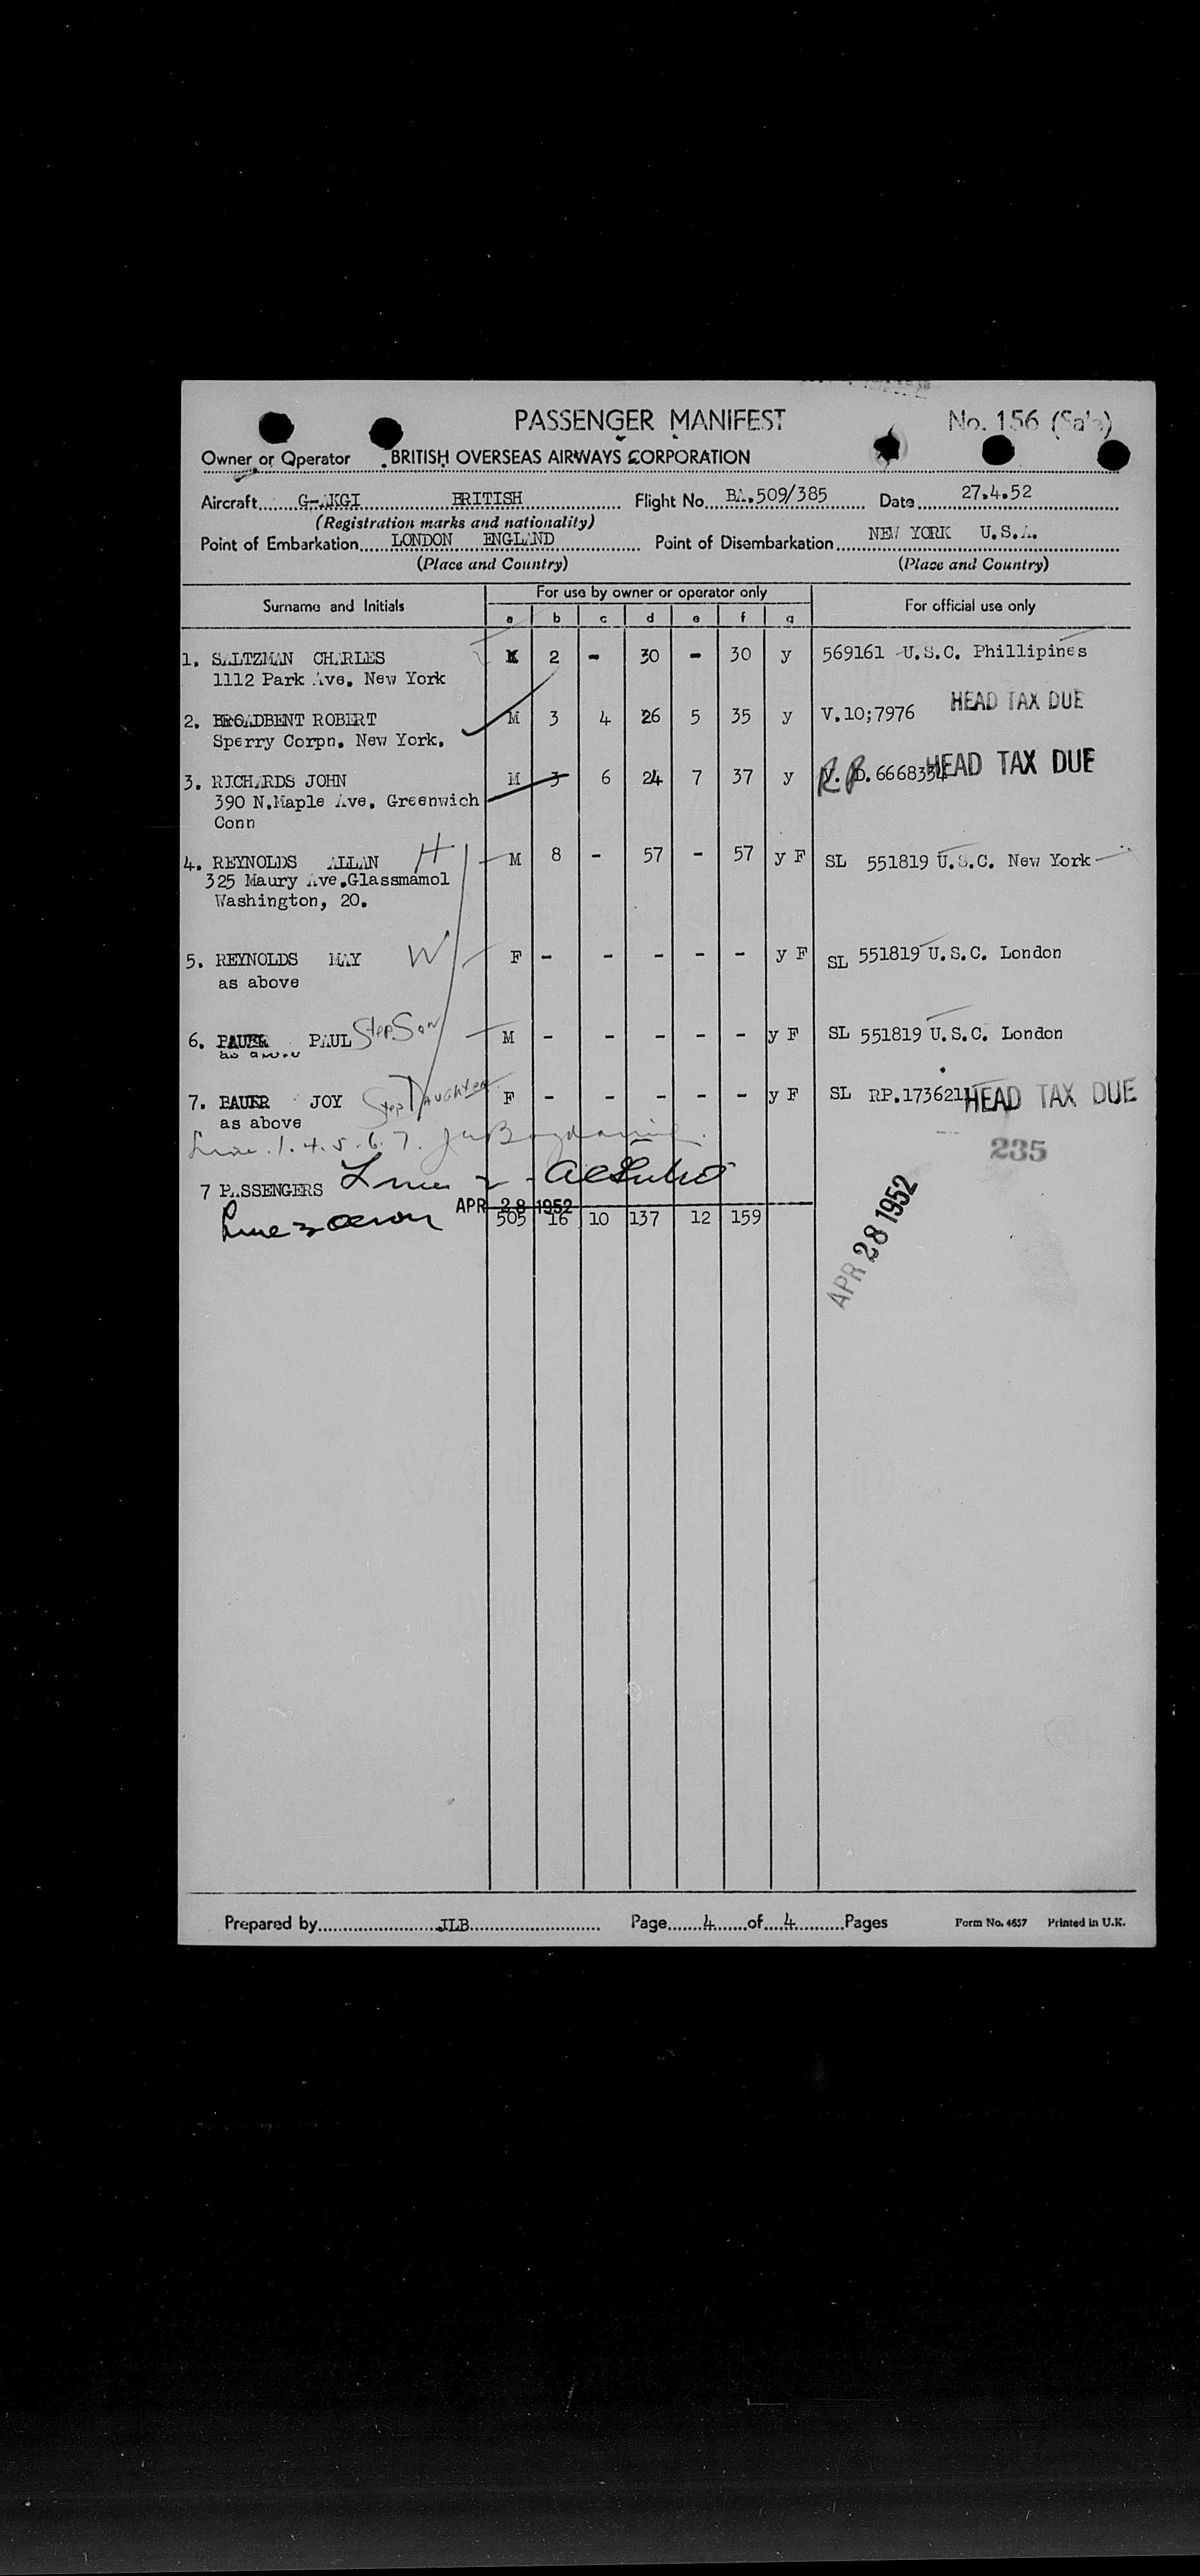 PASSENGER MANIFEST
No. 156 (Sa'a)
Owner or Operator BRITISH OVERSEAS AIRWAYS CORPORATION
Aircraft G-AKGI BRITISH Flight No. BA.509/385 Date 27.4.52
(Registration marks and nationality)
Point of Embarkation LONDON ENGLAND Point of Disembarkation NEW YORK U.S.A.
(Place and Country) (Place and Country)
Surname and Initials For use by owner or operator only For official use only
a b c d e f g
1. SALTZMAN CHARLES 2 - 30 - 30 y 569161 U.S.C. Phillipines
1112 Park Ave. New York
HEAD TAX DUE
2. BROADBENT ROBERT M 3 4 26 5 35 y V.10;7976
Sperry Corpn. New York.
HEAD TAX DUE
3. RICHARDS JOHN M 3 6 24 7 37 y RP 6668354
390 N.Maple Ave. Greenwich
Conn
4. REYNOLDS ALLAN H M 8 - 57 - 57 y F SL 551819 U.S.C. New York
325 Maury Ave.Glassmamol
Washington, 20.
5. REYNOLDS MAY W F - - - - - y F SL 551819 U.S.C. London
as above
6. PAUER PAUL Step Son M - - - - - y F SL 551819 U.S.C. London
as above
7. BAUER JOY Step Daughter F - - - - - y F SL RP.1736211 HEAD TAX DUE
as above
Line 1. 4. 5. 6. 7.
235
7 PASSENGERS Line 2
APR 28 1952
Line 3
505 16 10 137 12 159
APR 28 1952
Prepared by JLB Page 4 of 4 Pages Form No. 4657 Printed in U.K.